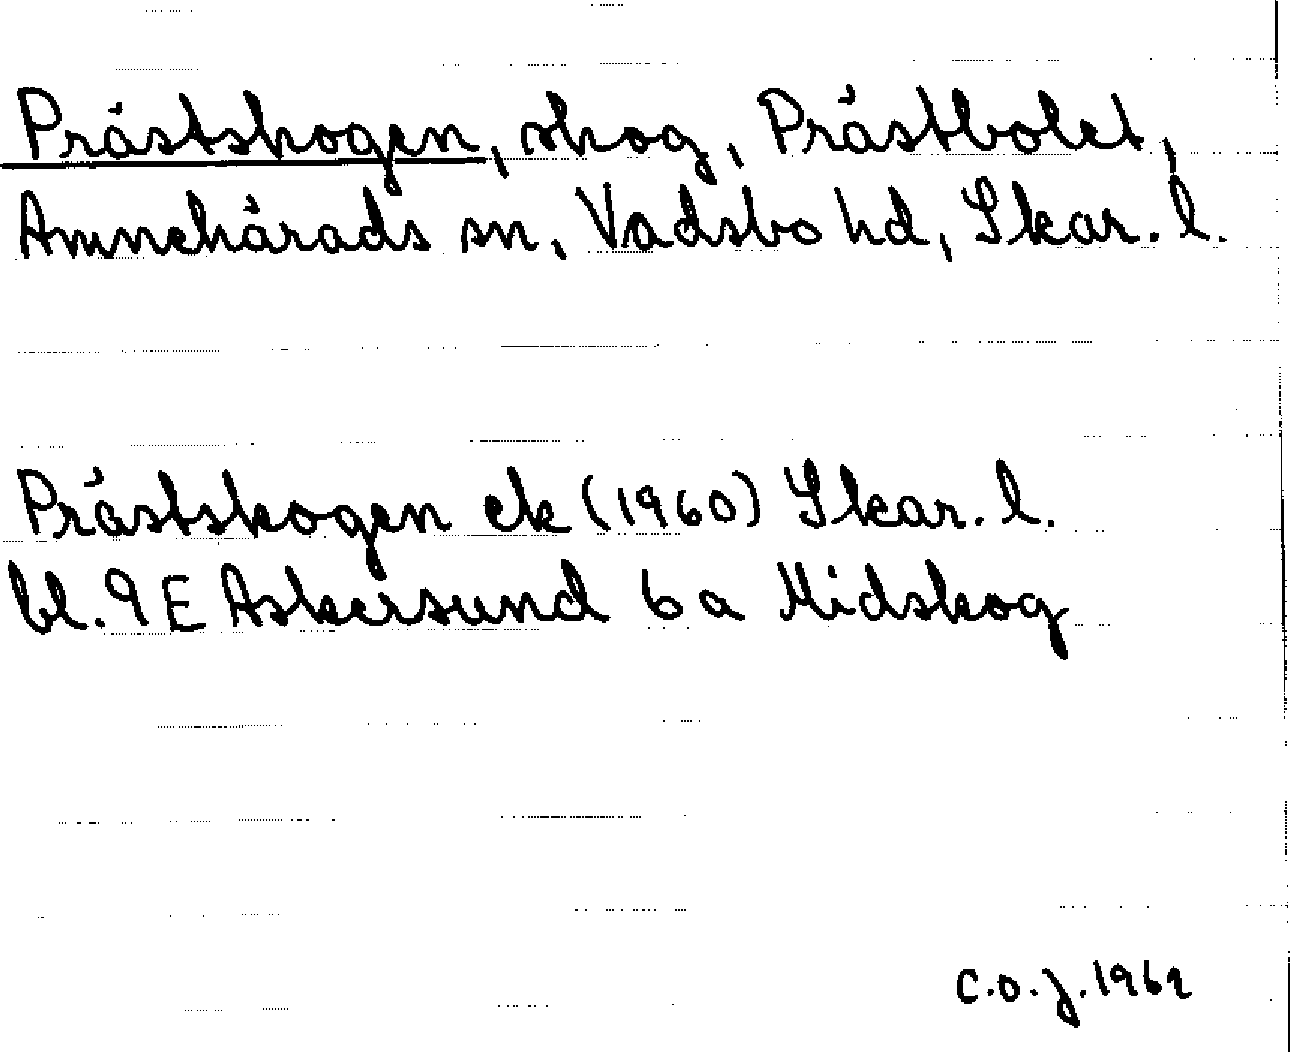 Prästskogen, skog, Prästbolet,
Amnehärads sn, Vadsbo hd, Skar. l.
Prästskogen ek (1960) Skar. l.
bl. 9E Askersund 6a Midskog
C.O.J. 1962